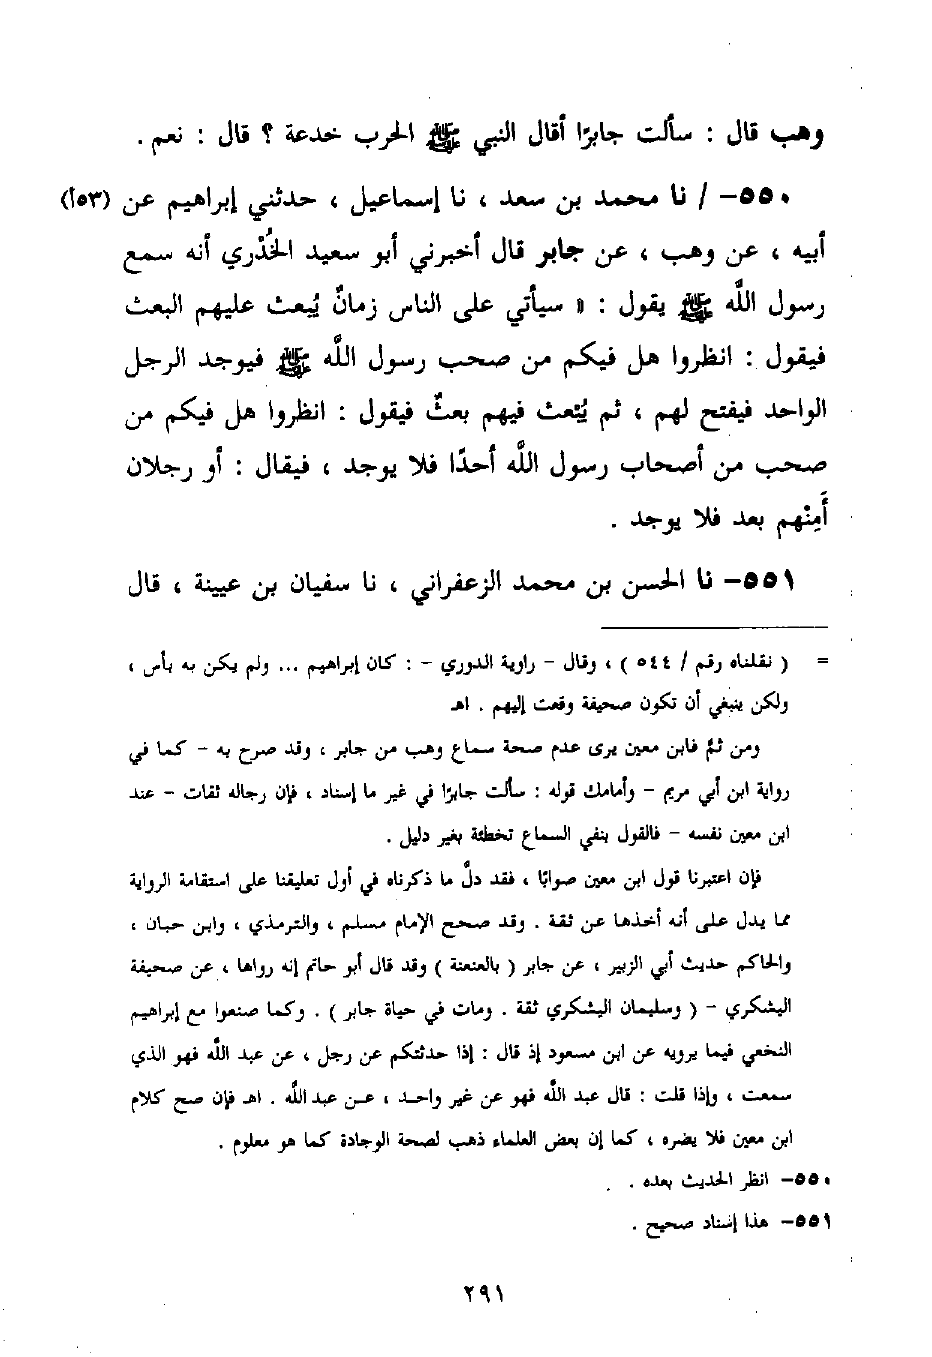 وهب قال : سألت جابرًا أقال النبي ﷺ الحرب خدعة ؟ قال : نعم .
٥٥٠– / نا محمد بن سعد ، نا إسماعيل ، حدثني إبراهيم عن (٥٣أ)
أبيه ، عن وهب ، عن جابر قال أخبرني أبو سعيد الخُدْري أنه سمع
رسول اللَّه ﷺ يقول : « سيأتي على الناس زمانٌ يُبعث عليهم البعث
فيقول : انظروا هل فيكم من صحب رسول اللَّه ﷺ فيوجد الرجل
الواحد فيفتح لهم ، ثم يُبْعث فيهم بعثٌ فيقول : انظروا هل فيكم من
صحب من أصحاب رسول اللَّه أحدًا فلا يوجد ، فيقال : أو رجلان
أَمِنْهم بعد فلا يوجد .
٥٥١– نا الحسن بن محمد الزعفراني ، نا سفيان بن عيينة ، قال
= ( نقلناه رقم / ٥٤٤ ) ، وقال – راوية الدوري – : كان إبراهيم ... ولم يكن به بأس ،
ولكن ينبغي أن تكون صحيفة وقعت إليهم . اهـ
ومن ثمَّ فابن معين يرى عدم صحة سماع وهب من جابر ، وقد صرح به – كما في
رواية ابن أبي مريم – وأمامك قوله : سألت جابرًا في غير ما إسناد ، فإن رجاله ثقات – عند
ابن معين نفسه – فالقول بنفي السماع تخطئة بغير دليل .
فإن اعتبرنا قول ابن معين صوابًا ، فقد دلَّ ما ذكرناه في أول تعليقنا على استقامة الرواية
مما يدل على أنه أخذها عن ثقة . وقد صحح الإمام مسلم ، والترمذي ، وابن حبان ،
والحاكم حديث أبي الزبير ، عن جابر ( بالعنعنة ) وقد قال أبو حاتم إنه رواها ، عن صحيفة
اليشكري – ( وسليمان اليشكري ثقة . ومات في حياة جابر ) . وكما صنعوا مع إبراهيم
النخعي فيما يرويه عن ابن مسعود إذ قال : إذا حدثتكم عن رجل ، عن عبد اللَّه فهو الذي
سمعت ، وإذا قلت : قال عبد اللَّه فهو عن غير واحد ، عن عبد اللَّه . اهـ فإن صح كلام
ابن معين فلا يضره ، كما إن بعض العلماء ذهب لصحة الوجادة كما هو معلوم .
٥٥٠– انظر الحديث بعده .
٥٥١– هذا إسناد صحيح .
٢٩١